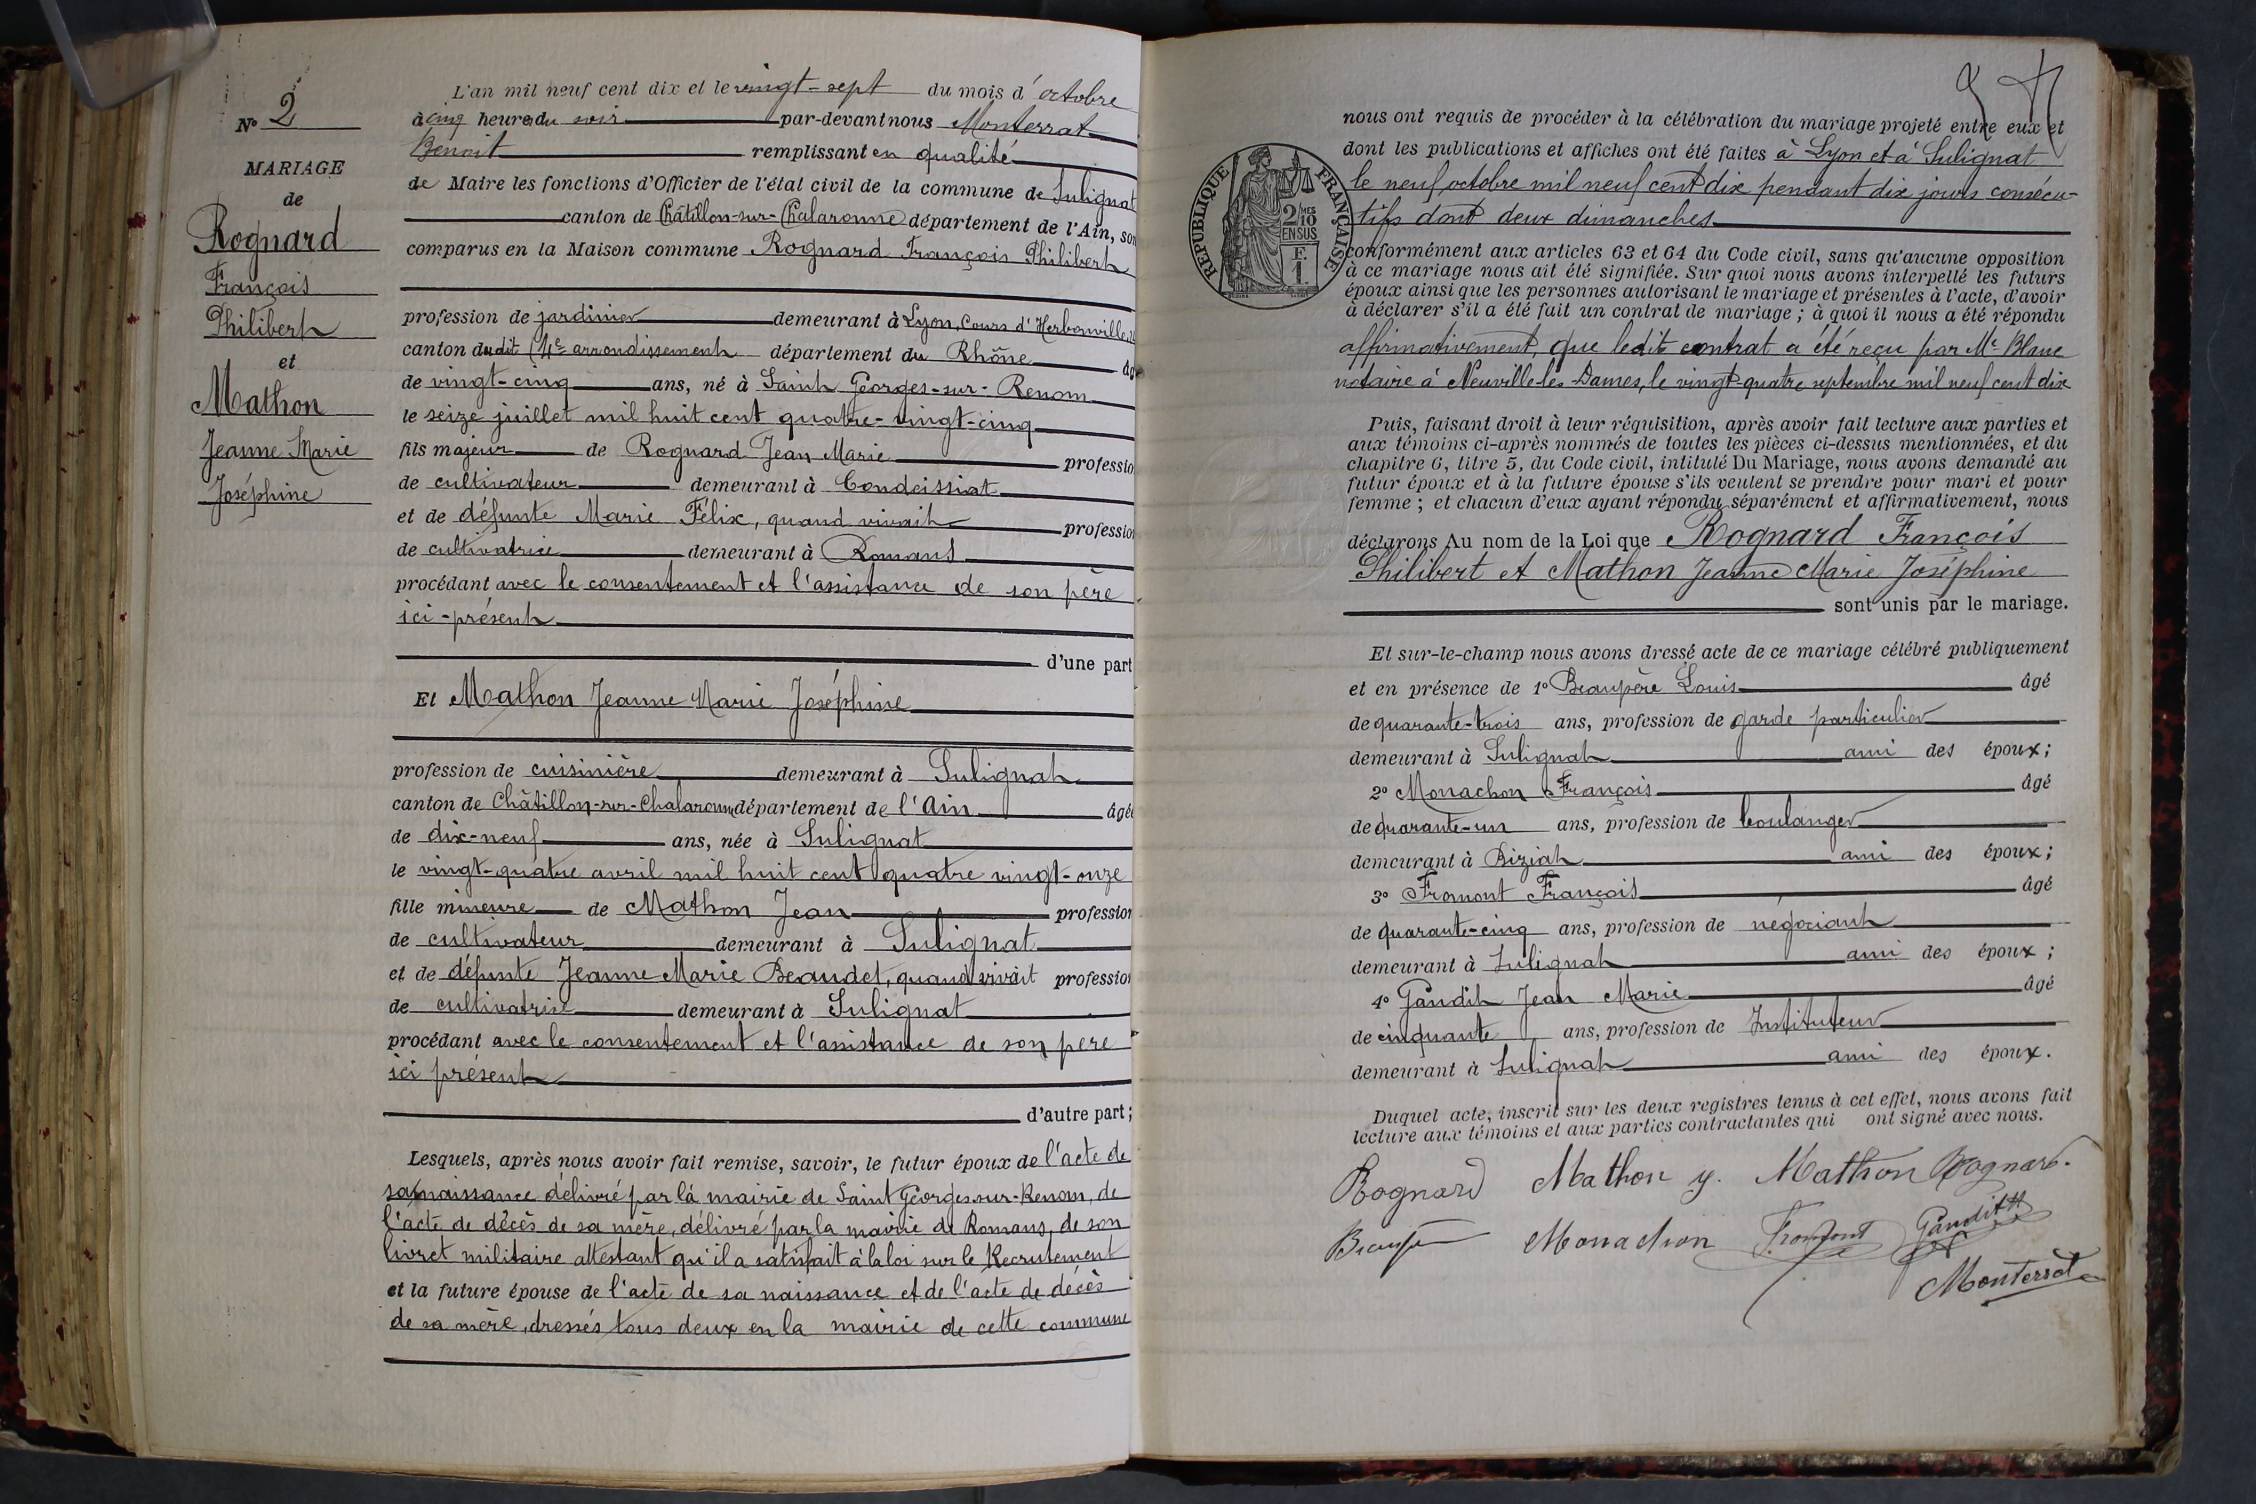 N° 2
MARIAGE
de
Rognard
François
Philibert
et
Mathon
Jeanne Marie
Joséphine
L'an mil neuf cent dix et le vingt-sept du mois d'octobre
à cinq heures du soir par-devant nous Monterrat
Benoit remplissant en qualité
de Maire les fonctions d'Officier de l'état civil de la commune de Sulignat
canton de Châtillon-sur-Chalaronne département de l'Ain, son
comparus en la Maison commune Rognard François Philibert
profession de jardinier demeurant à Lyon, Cours d'Herbouville
canton dudit (4e arrondissement département du Rhône âgé
de vingt-cinq ans, né à Saint Georges-sur-Renom
le seize juillet mil huit cent quatre-vingt-cinq
fils majeur de Rognard Jean Marie profession
de cultivateur demeurant à Condeissiat
et de défunte Marie Félix, quand vivait profession
de cultivatrice demeurant à Romans
procédant avec le consentement et l'assistance de son père
ici-présent
d'une part
Et Mathon Jeanne Marie Joséphine
profession de cuisinière demeurant à Sulignat
canton de Châtillon-sur-Chalaronne département de l'Ain âgée
de dix-neuf ans, née à Sulignat
le vingt-quatre avril mil huit cent quatre vingt-onze
fille mineure de Mathon Jean profession
de cultivateur demeurant à Sulignat
et de défunte Jeanne Marie Beaudet, quand vivait profession
de cultivatrice demeurant à Sulignat
procédant avec le consentement et l'assistance de son père
ici présent
d'autre part;
Lesquels, après nous avoir fait remise, savoir, le futur époux de l'acte de
sa naissance délivré par la mairie de Saint Georges-sur-Renom, de
l'acte de décès de sa mère, délivré par la mairie de Romans, de son
livret militaire attestant qu'il a satisfait à la loi sur le Recrutement
et la future épouse de l'acte de sa naissance et de l'acte de décès
de sa mère, dressés tous deux en la mairie de cette commune
nous ont requis de procéder à la célébration du mariage projeté entre eux et
dont les publications et affiches ont été faites à Lyon et à Sulignat
le neuf octobre mil neuf cent dix pendant dix jours consécu-
tifs dont deux dimanches
RÉPUBLIQUE FRANÇAISE
2/10 MES
EN SUS
F.
1.
conformément aux articles 63 et 64 du Code civil, sans qu'aucune opposition
à ce mariage nous ait été signifiée. Sur quoi nous avons interpellé les futurs
époux ainsi que les personnes autorisant le mariage et présentes à l'acte, d'avoir
à déclarer s'il a été fait un contrat de mariage ; à quoi il nous a été répondu
affirmativement, que ledit contrat a été reçu par Me Blanc
notaire à Neuville-les-Dames, le vingt-quatre septembre mil neuf cent dix
Puis, faisant droit à leur réquisition, après avoir fait lecture aux parties et
aux témoins ci-après nommés de toutes les pièces ci-dessus mentionnées, et du
chapitre 6, titre 5, du Code civil, intitulé Du Mariage, nous avons demandé au
futur époux et à la future épouse s'ils veulent se prendre pour mari et pour
femme ; et chacun d'eux ayant répondu séparément et affirmativement, nous
déclarons Au nom de la Loi que Rognard François
Philibert et Mathon Jeanne Marie Joséphine
sont unis par le mariage.
Et sur-le-champ nous avons dressé acte de ce mariage célébré publiquement
et en présence de 1° Beaupère Louis âgé
de quarante-trois ans, profession de garde particulier
demeurant à Sulignat ami des époux;
2° Monachon François âgé
de quarante-un ans, profession de boulanger
demeurant à Biziat ami des époux;
3° Fromont François âgé
de quarante-cinq ans, profession de négociant
demeurant à Sulignat ami des époux;
4° Gandit Jean Marie âgé
de cinquante ans, profession de Instituteur
demeurant à Sulignat ami des époux.
Duquel acte, inscrit sur les deux registres tenus à cet effet, nous avons fait
lecture aux témoins et aux parties contractantes qui ont signé avec nous.
Rognard Mathon y. Mathon Rognard.
Monachon Fromont Gandit
Monterrat